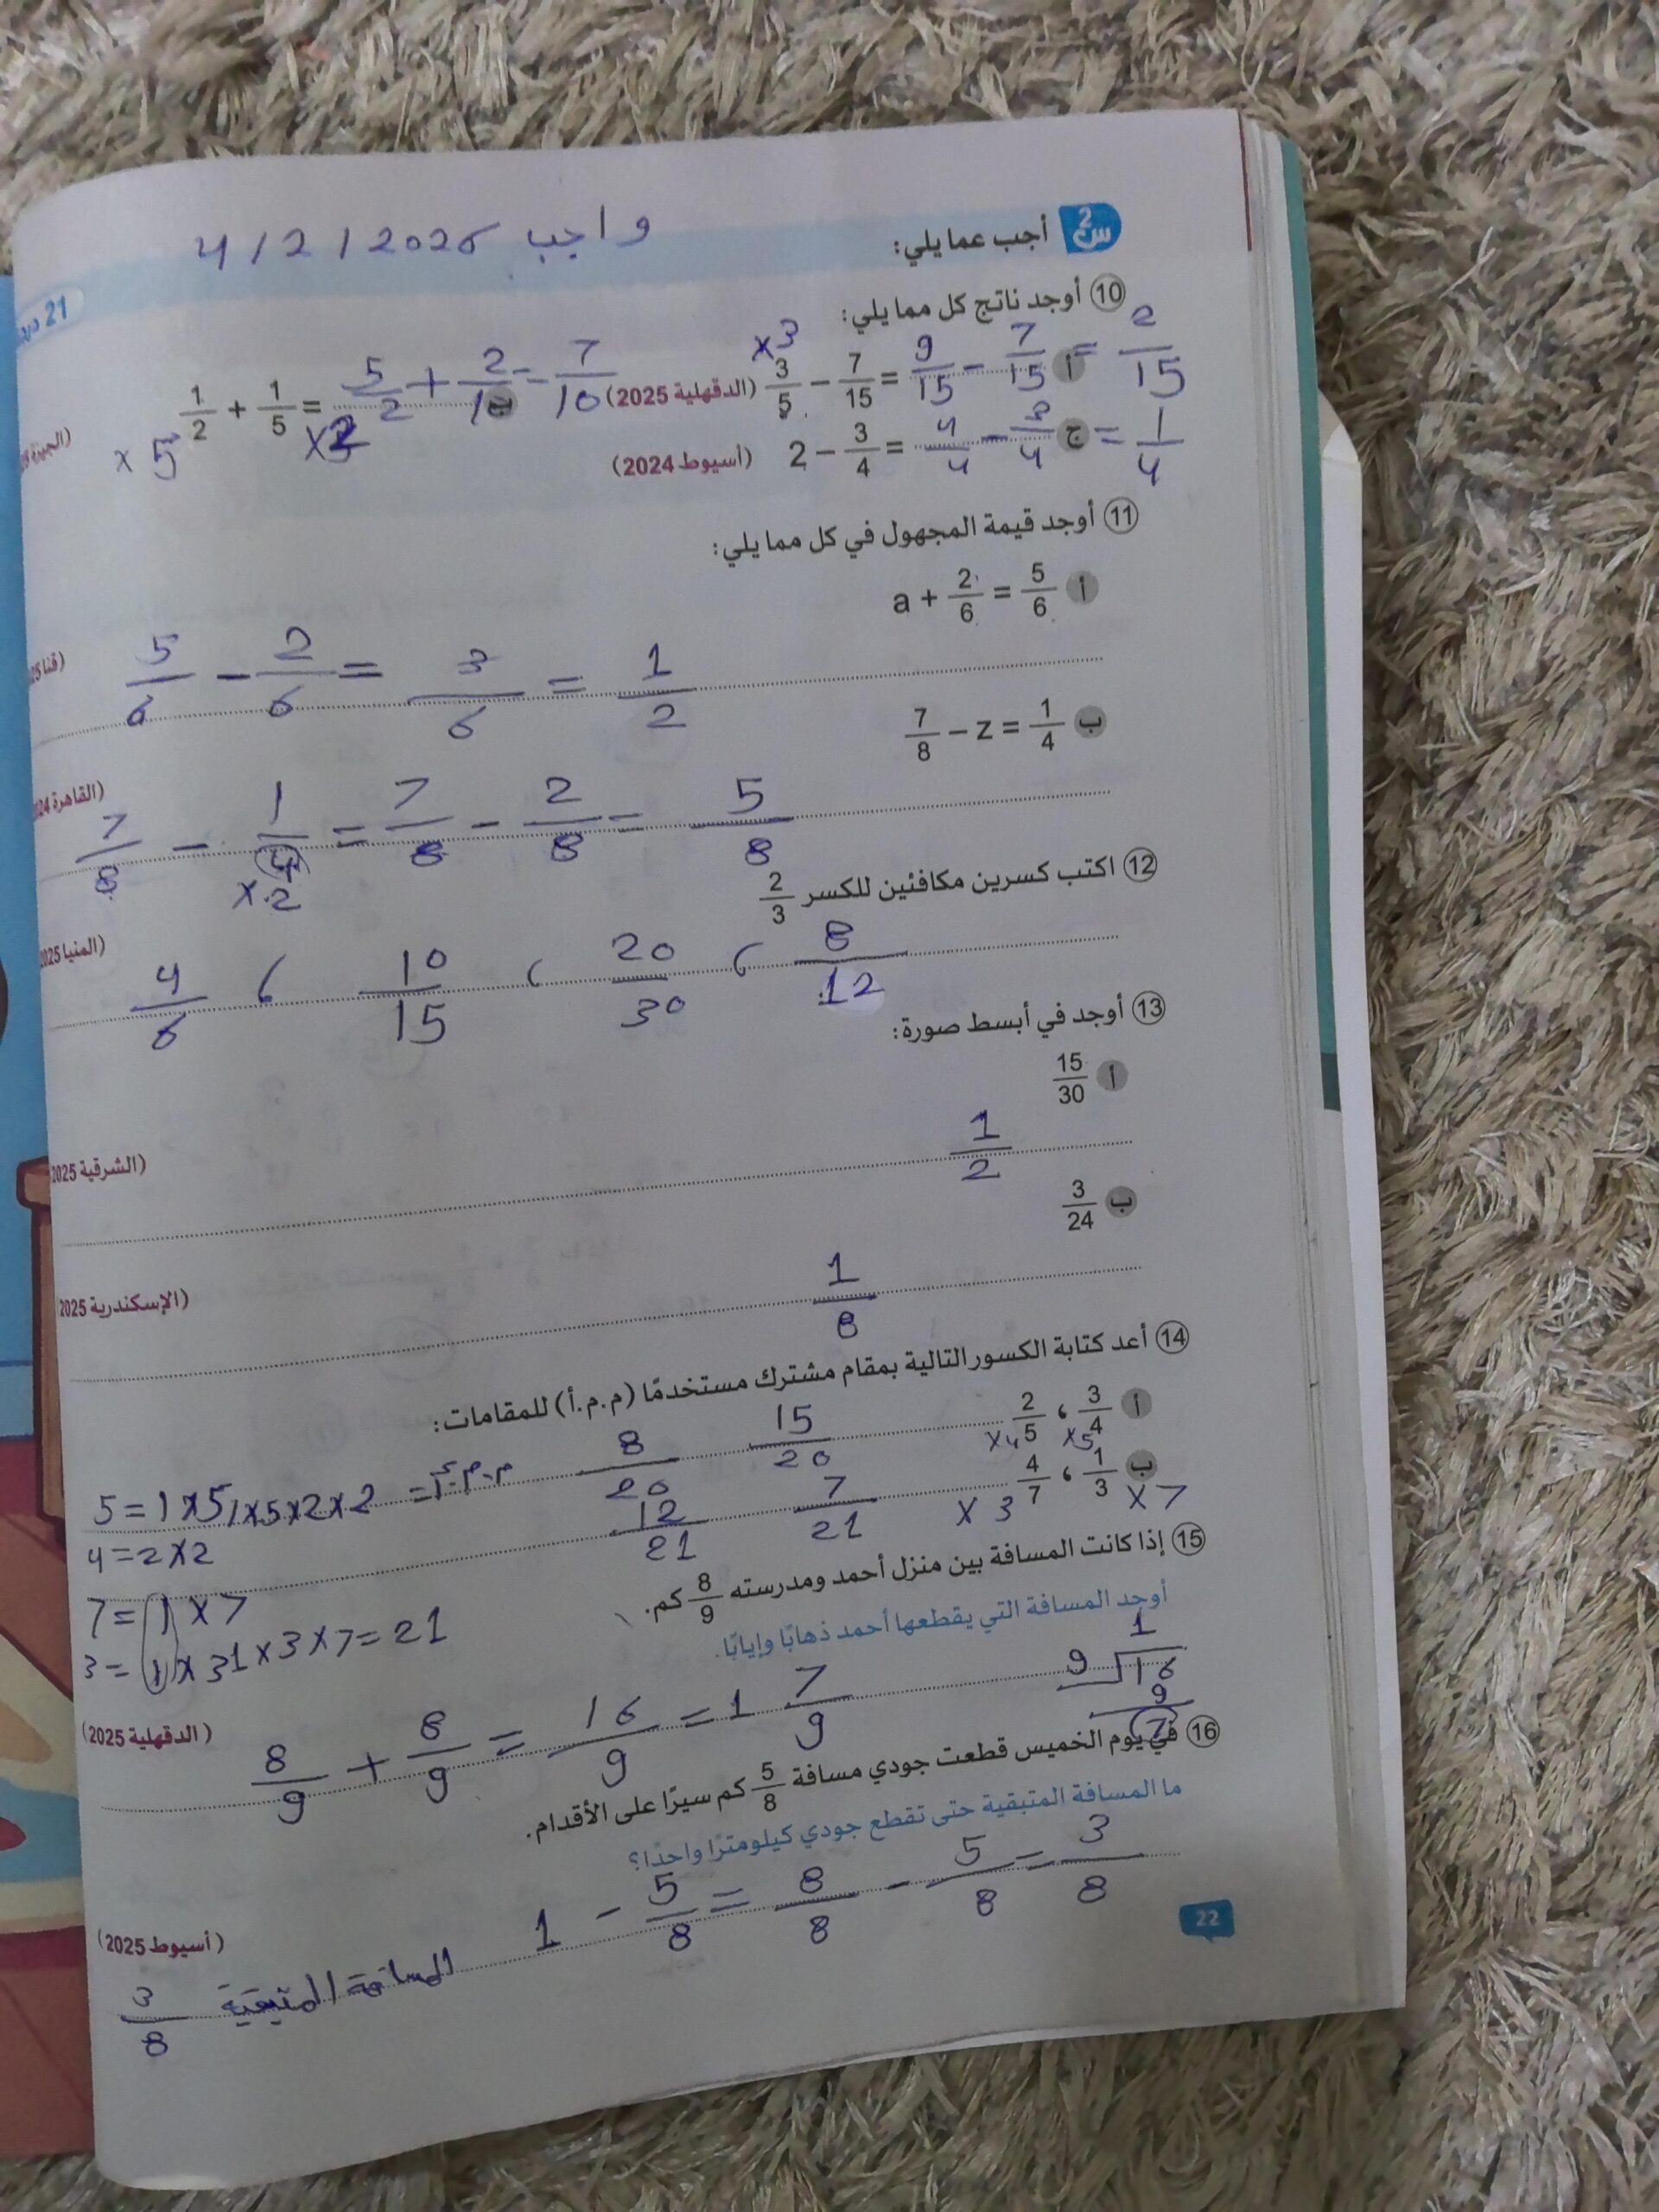 واجب 4/2/2026
س2 أجب عما يلي:
21 در
10 أوجد ناتج كل مما يلي:
أ 3/5 − 7/15 = 9/15 − 7/15 = 2/15 ×3 (الدقهلية 2025)
ب 1/2 + 1/5 = 5/2 + 2/10 = 7/10 ×5 ×2 (الجيزة
ج 2 − 3/4 = 4/4 − 3/4 = 1/4 (أسيوط 2024)
11 أوجد قيمة المجهول في كل مما يلي:
أ a + 2/6 = 5/6
5/6 − 2/6 = 3/6 = 1/2 (قنا 25
ب 7/8 − z = 1/4
7/8 − 1/4 = 7/8 − 2/8 = 5/8 (القاهرة 24
×2
12 اكتب كسرين مكافئين للكسر 2/3
4/6 ، 10/15 ، 20/30 ، 8/12 (المنيا 2025
13 أوجد في أبسط صورة:
أ 15/30
1/2 (الشرقية 2025
ب 3/24
1/8 (الإسكندرية 2025
14 أعد كتابة الكسور التالية بمقام مشترك مستخدمًا (م.م.أ) للمقامات:
أ 3/4 ، 2/5 ×5 ×4 15/20 8/20 م.م.أ =
5 = 1×5 1×5×2×2
4 = 2×2
ب 1/3 ، 4/7 ×7 ×3 7/21 12/21
7 = 1×7
3 = 1×3 1×3×7=21
15 إذا كانت المسافة بين منزل أحمد ومدرسته 8/9 كم.
أوجد المسافة التي يقطعها أحمد ذهابًا وإيابًا.
8/9 + 8/9 = 16/9 = 1 7/9 (الدقهلية 2025)
1
9 16
9
7
16 في يوم الخميس قطعت جودي مسافة 5/8 كم سيرًا على الأقدام.
ما المسافة المتبقية حتى تقطع جودي كيلومترًا واحدًا؟
1 − 5/8 = 8/8 − 5/8 = 3/8 (أسيوط 2025)
المسافة المتبقية 3/8
22